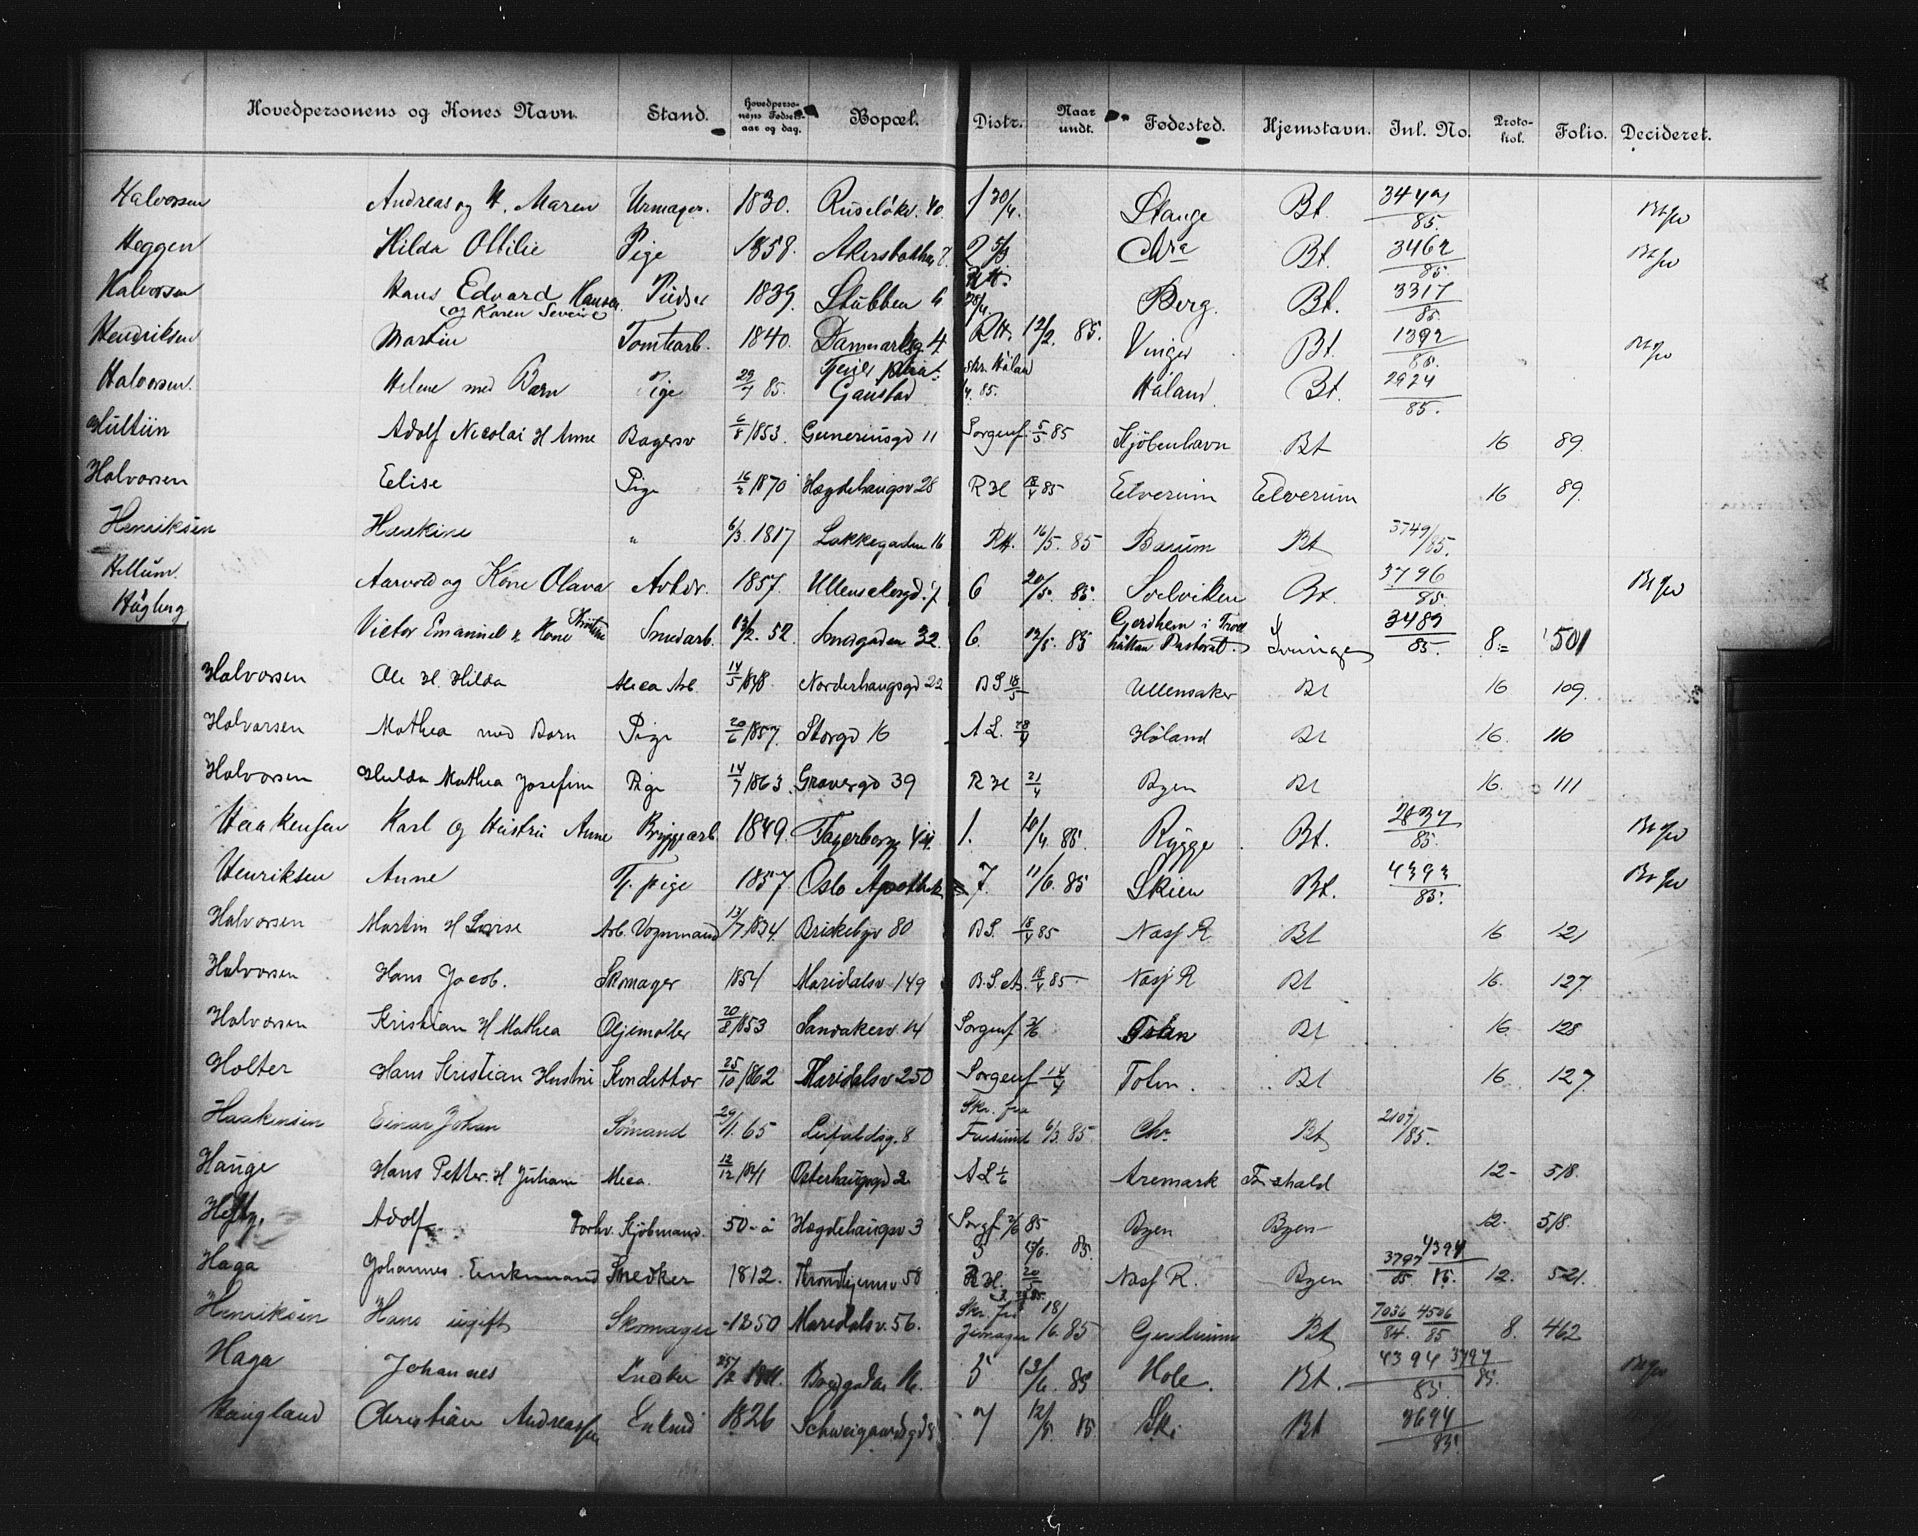 Hovedpersonens og Kones Navn. Stand. Hovedperso-nens Fødsels-aar og dag. Bopæl. Distr. Naar undt. Fødested. Hjemstavn. Inl. No. Proto-kol. Folio. Decideret.
Halvorsen Andreas og H. Maren Urmager. 1830. Ruseløkv. 40. 1 30/4. Stange Bt. 85.
Heggen Hilda Ottilie Pige 1858. 2 5/3 Bt. 3462/85.
Halvorsen Hans Edvard Hansen 1839. Stubben 6 28/4. Berg. Bt. 3317/85.
og Karen Severine
Hendriksen Martin Tomtearb. 1840. Danmarksg 4. RH. 12/2. 85. Vinger Bt. 1392/85.
Halvorsen. Helene med Barn Pige 29/7 85. Gaustad Skr. Høland 4. 85. Høland. Bt. 2924/85.
Hultiin Adolf Nicolai H Anne Bagersv 6/8 1853. Guneriusgd 11 Sorgenf. 5/5 85 Kjøbenhavn Bt 16 89.
Halvorsen Eelise Pige 16/2 1870 Hægdehaugsv 28 R H 85 Eelverum Eelverum 16 89.
Henriksen Haakine " 6/3. 1817 Lakkegaden 16 RH. 16/5. 85 Bærum Bt 3749/85.
Hellum. Aarvold og Kone Olava Arbdr. 1857. Ullensakergd. 7 6 20/5. 85. Svelviken Bt. 3796/85.
Högberg Victor Emanuel & Kone Kristine Smedarb. 13/2. 52. Smedgaden 32. 6. 12/5. 85 Gerdhem i Troll hättan Pastorat. Sverige 3483/85. 8 501
Halvorsen Ole H. Hilda Meca Arb. 14/5 1848. Nordenhaugsgd 22 B S 18/5 Ullensaker Bt 16 109.
Halvorsen Mathea med Barn Pige 20/6 1857. Storgd 16 A L. 28/4 Høland Bt 16. 110
Halvorsen Hulda Mathea Josefine Pige 14/7 1863. Gravergd 39 R H 21/4 Byen Bt 16. 111
Haakensen Karl og Hustru Anne Bryggearb. 1849. Fagerborgg 44. 1. 10/4. 85. Rygge. Bt. 2837/85.
Henriksen Anne Tj. pige 1857 Oslo Apothek 7. 11/6. 85 Skien Bt. 4393/85.
Halvorsen Martin H Lovise Arb. Vognmand 13/7 1834. Briskebyv 80 B S. 18/4 85 Nasj R. Bt 16 121
Halvorsen Hans Jacob. Skomager 1854 Maridalsv 149 B. S. A. 18/4 85 Nasj R Bt 16. 127.
Halvorsen Kristian H Mathea Oljemøller 20/8 1853 Sandakerv. 14 Sorgenf 2/6 Bt 16. 128
Holter Hans Kristian Hustru Konditter 25/10 1862 Maridalsv 250 Sorgenf 14/4 Bt 16 127.
Haakensen Einar Johan Sømand 29/1. 65 8 Skr. fra 6/3. 85. Chr. Bt 2107/85.
Hauge Hans Petter. H Juliane Meca. 12/12 1841 Osterhausgd 2. A L Aremark F. shald 12 518.
Heftg. Adolf Forhv. Kjøbmand. 50 å Hægdehaugsv 3 Sorgf 2/6 85 Byen Byen 12. 518.
Haga Johannes. Enkemand Snedker 1812. Trondhjemsv 58 5 13/6. 85. R H. 20/5 Nasj R. Byen 3797/85 4394/85. 12. 521.
Henriksen Hans ugift Skomager 1850 Maridalsv. 56. Skr. fra 18/6. 85 Gjerdrum Bt 7036/84. 4506/85 8. 462
Haga Johannes Snedker 25/2 Bredgaden 16. 5 13/6. 85 Hole. Bt. 4394/85. 3797/85.
Haugland Christian Andreassen 1826 Schweigaardsgd 7 12/5 85. Ski Bt 3694/85.